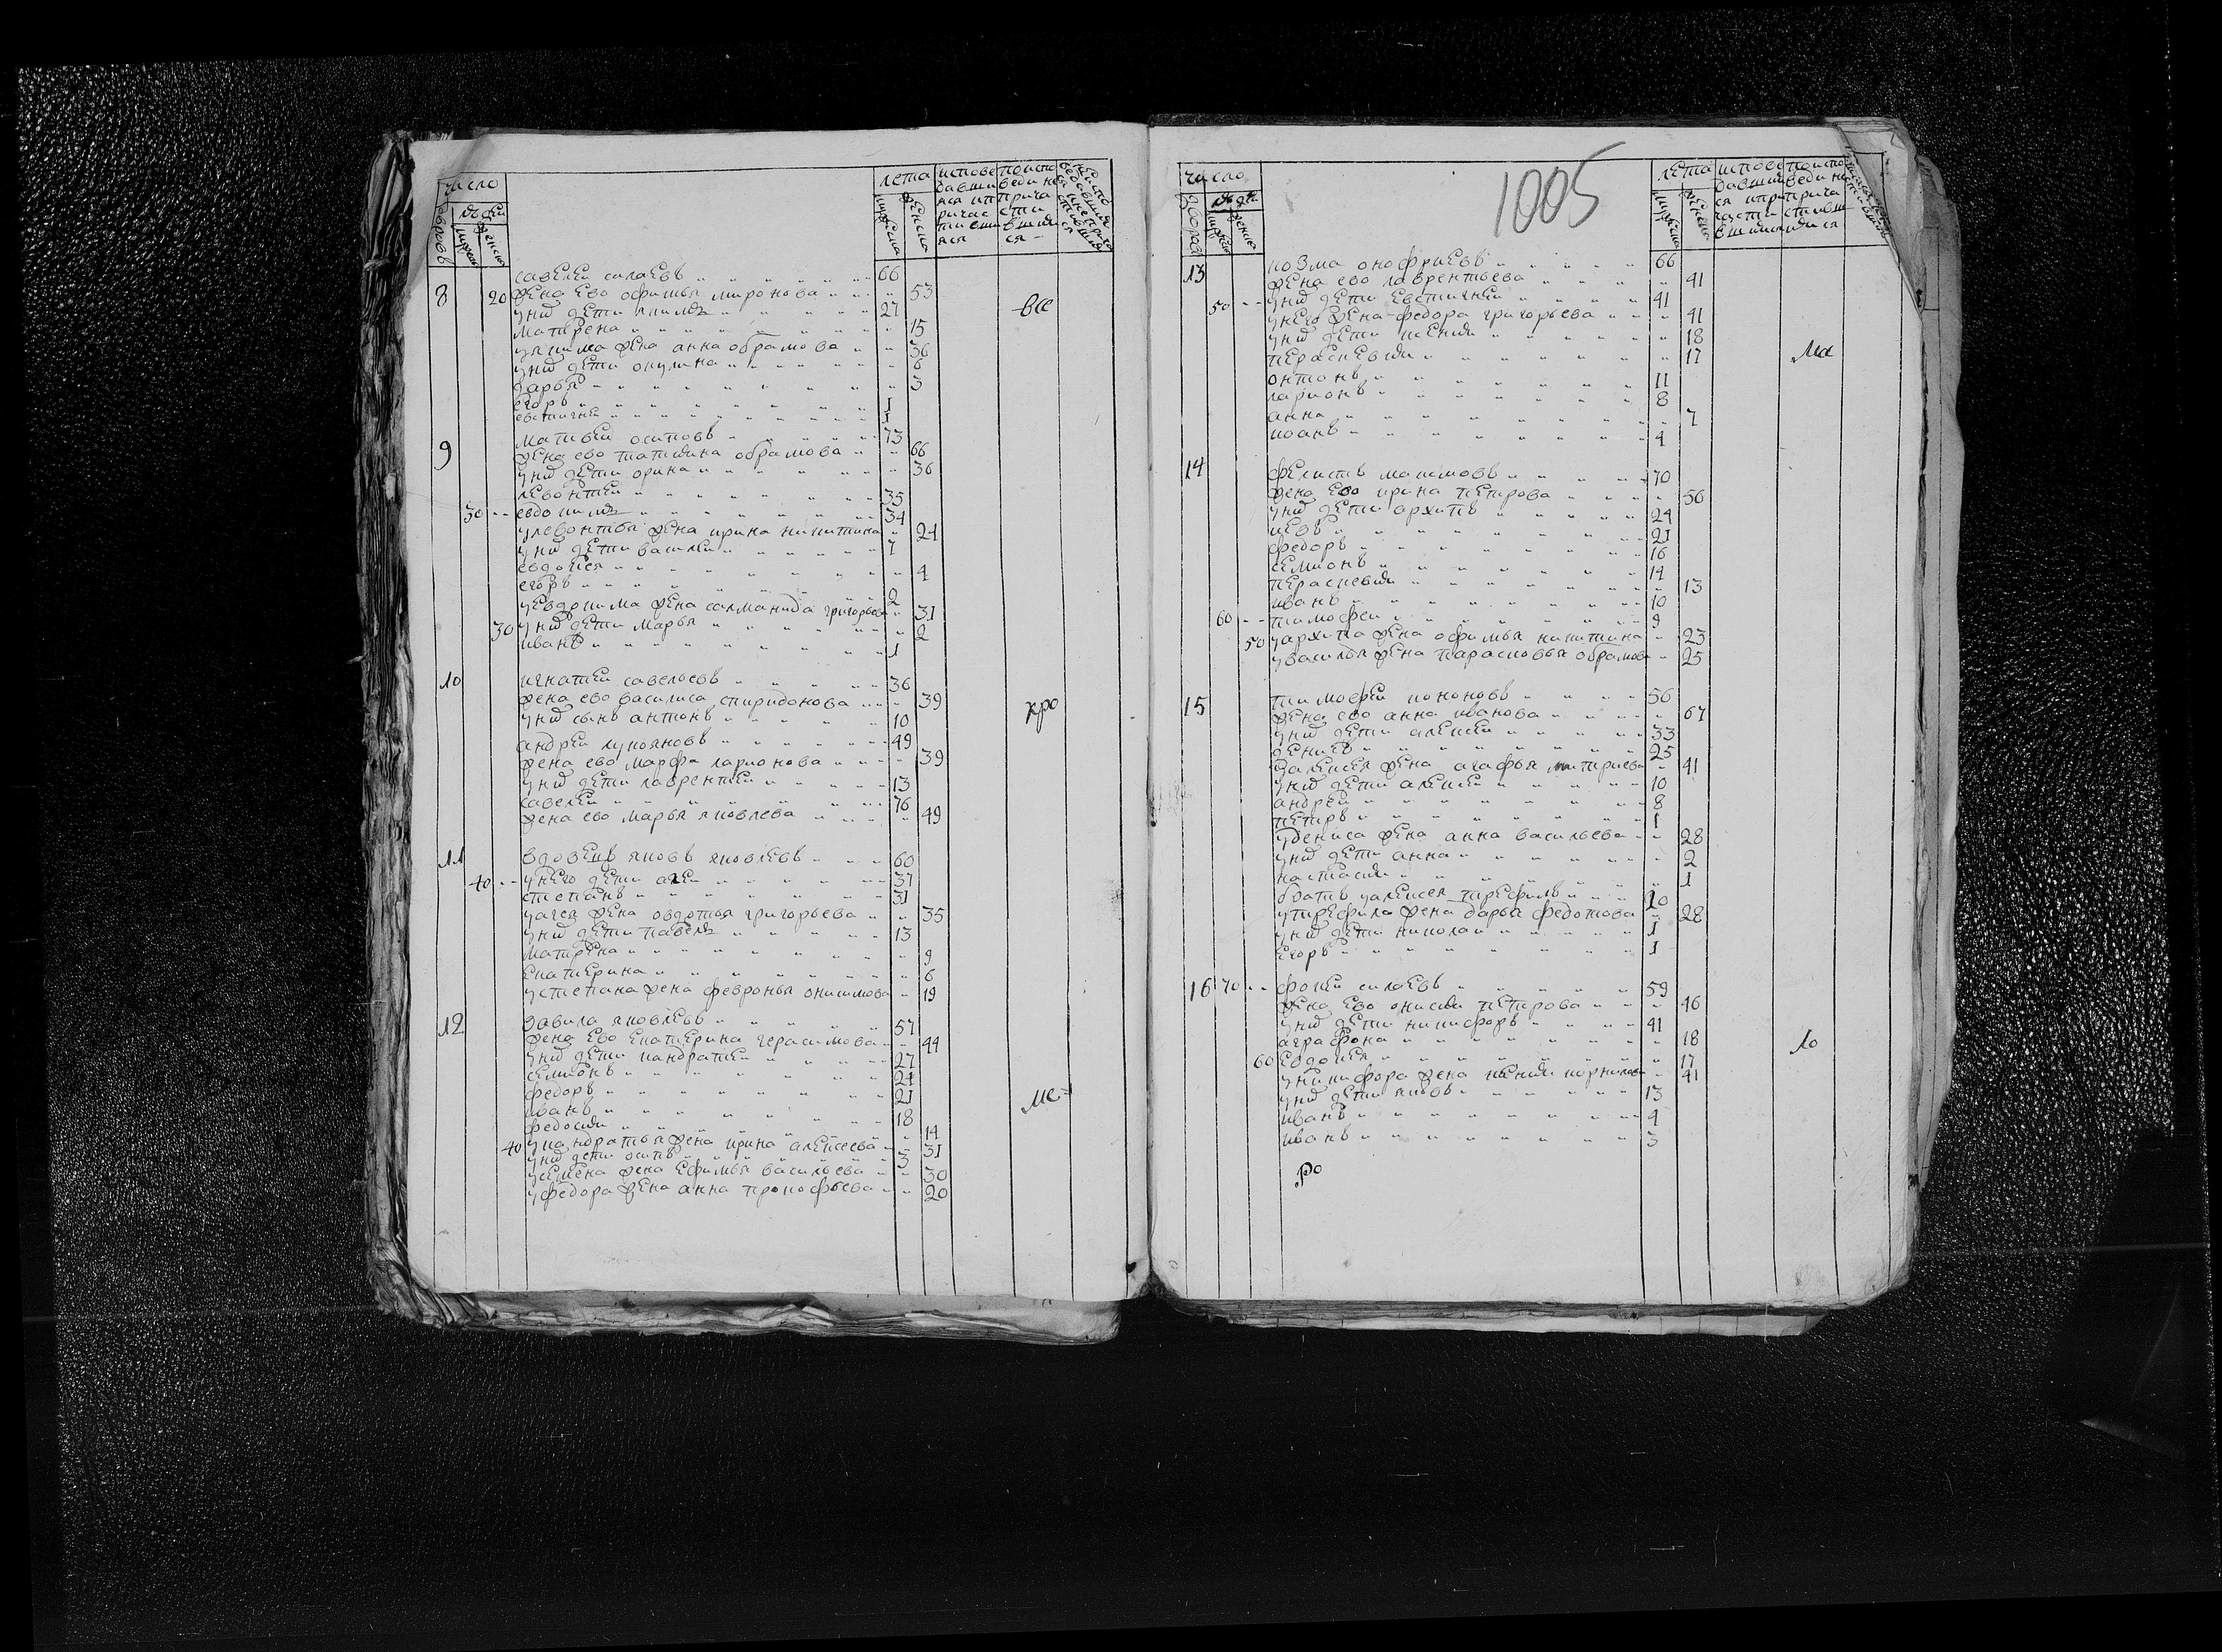 число
лета
исповедавшияся и причастившияся
по исповеди не причастившияся
дворовъ
людей
мужеска
женска
мужеска
женска
савелей силаевъ 66
8 20 жена ево офимья миронова 53
у них дети якимъ 27 все
матрена 15
у якима жена анна обрамова 36
у них дети окулина 6
дарья 3
егоръ 1
евстигней 1
матвей осиповъ 73
9 жена ево татияна обрамова 66
у них дети орина 36
левонтей 35
30 евдокимъ 34
у левонтья жена ирина никитина 24
у них дети василей 7
евдокея 4
егоръ 2
у евдокима жена саламанида григорьева 31
30 у них дети марья 2
иванъ 1
10 игнатей савелоевъ 36
жена ево василиса спиридонова 39
у них сынъ антонъ 10 хро
андрей лукояновъ 49
жена ево марфа ларионова 39
у них дети лаврентей 13
савелей 76
жена ево марья яковлева 49
11 вдовецъ яковъ яковлевъ 60
40 у него дети агей 37
степанъ 31
у агея жена овдотья григорьева 35
у них дети павелъ 13
матрена 9
екатерина 6
у степана жена февронья онисимова 19
12 давила яковлевъ 57
жена ево екатерина герасимова 44
у них дети кандратей 27
семионъ 24
федоръ 21
иванъ 18 ме
федосия 14
40 у кандратья жена ирина алексеева 31
у них дети осипъ 3
у семена жена ефимья васильева 30
у федора жена анна прокофьева 20
число
1005
лета
исповедавшияся и причастившияся
по исповеди не причастившияся
дворовъ
людей
мужеска
женска
мужеска
женска
козма онофриевъ 66
13 жена ево лаврентьева 41
50 у них дети евстигней 41
у него жена федора григорьева 41
у них дети ксения 18
пераскевия 17 ма
онтонъ 11
ларионъ 8
анна 7
иоанъ 4
14 феликтъ максимовъ 70
жена ево ирина петрова 56
у них дети архипъ 24
21
федоръ 16
семионъ 14
пераскевия 13
иванъ 10
60 тимофей 9
50 у архипа жена офимья никитина 23
у василья жена парасковья обрамова 25
тимофей кононовъ 56
15 жена ево анна иванова 67
у них дети алексей 33
денисъ 25
у алексея жена агафья митриева 41
у них дети алексей 10
андрей 8
петръ 1
у дениса жена анна васильева 28
у них дети анна 2
настасия 1
братъ у алексея трефилъ 20
у трефила жена дарья федотова 28
у них дети никола 1
егоръ 1
16 70 фокей силаевъ 59
жена ево онисия петрова 46
у них дети никифоръ 41
аграфона 18 ло
60 евдокея 17
у никифора жена ксения корнилова 41
у них дети яковъ 13
иванъ 4
иванъ 3
Ро